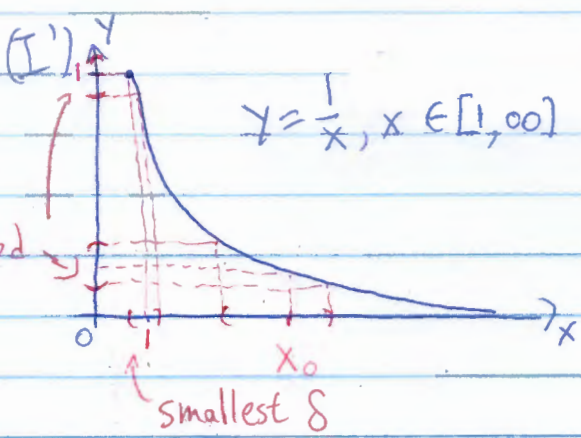 (I') Y
1
y = 1/x, x ∈ [1, ∞]
0 1 x
x₀
smallest δ